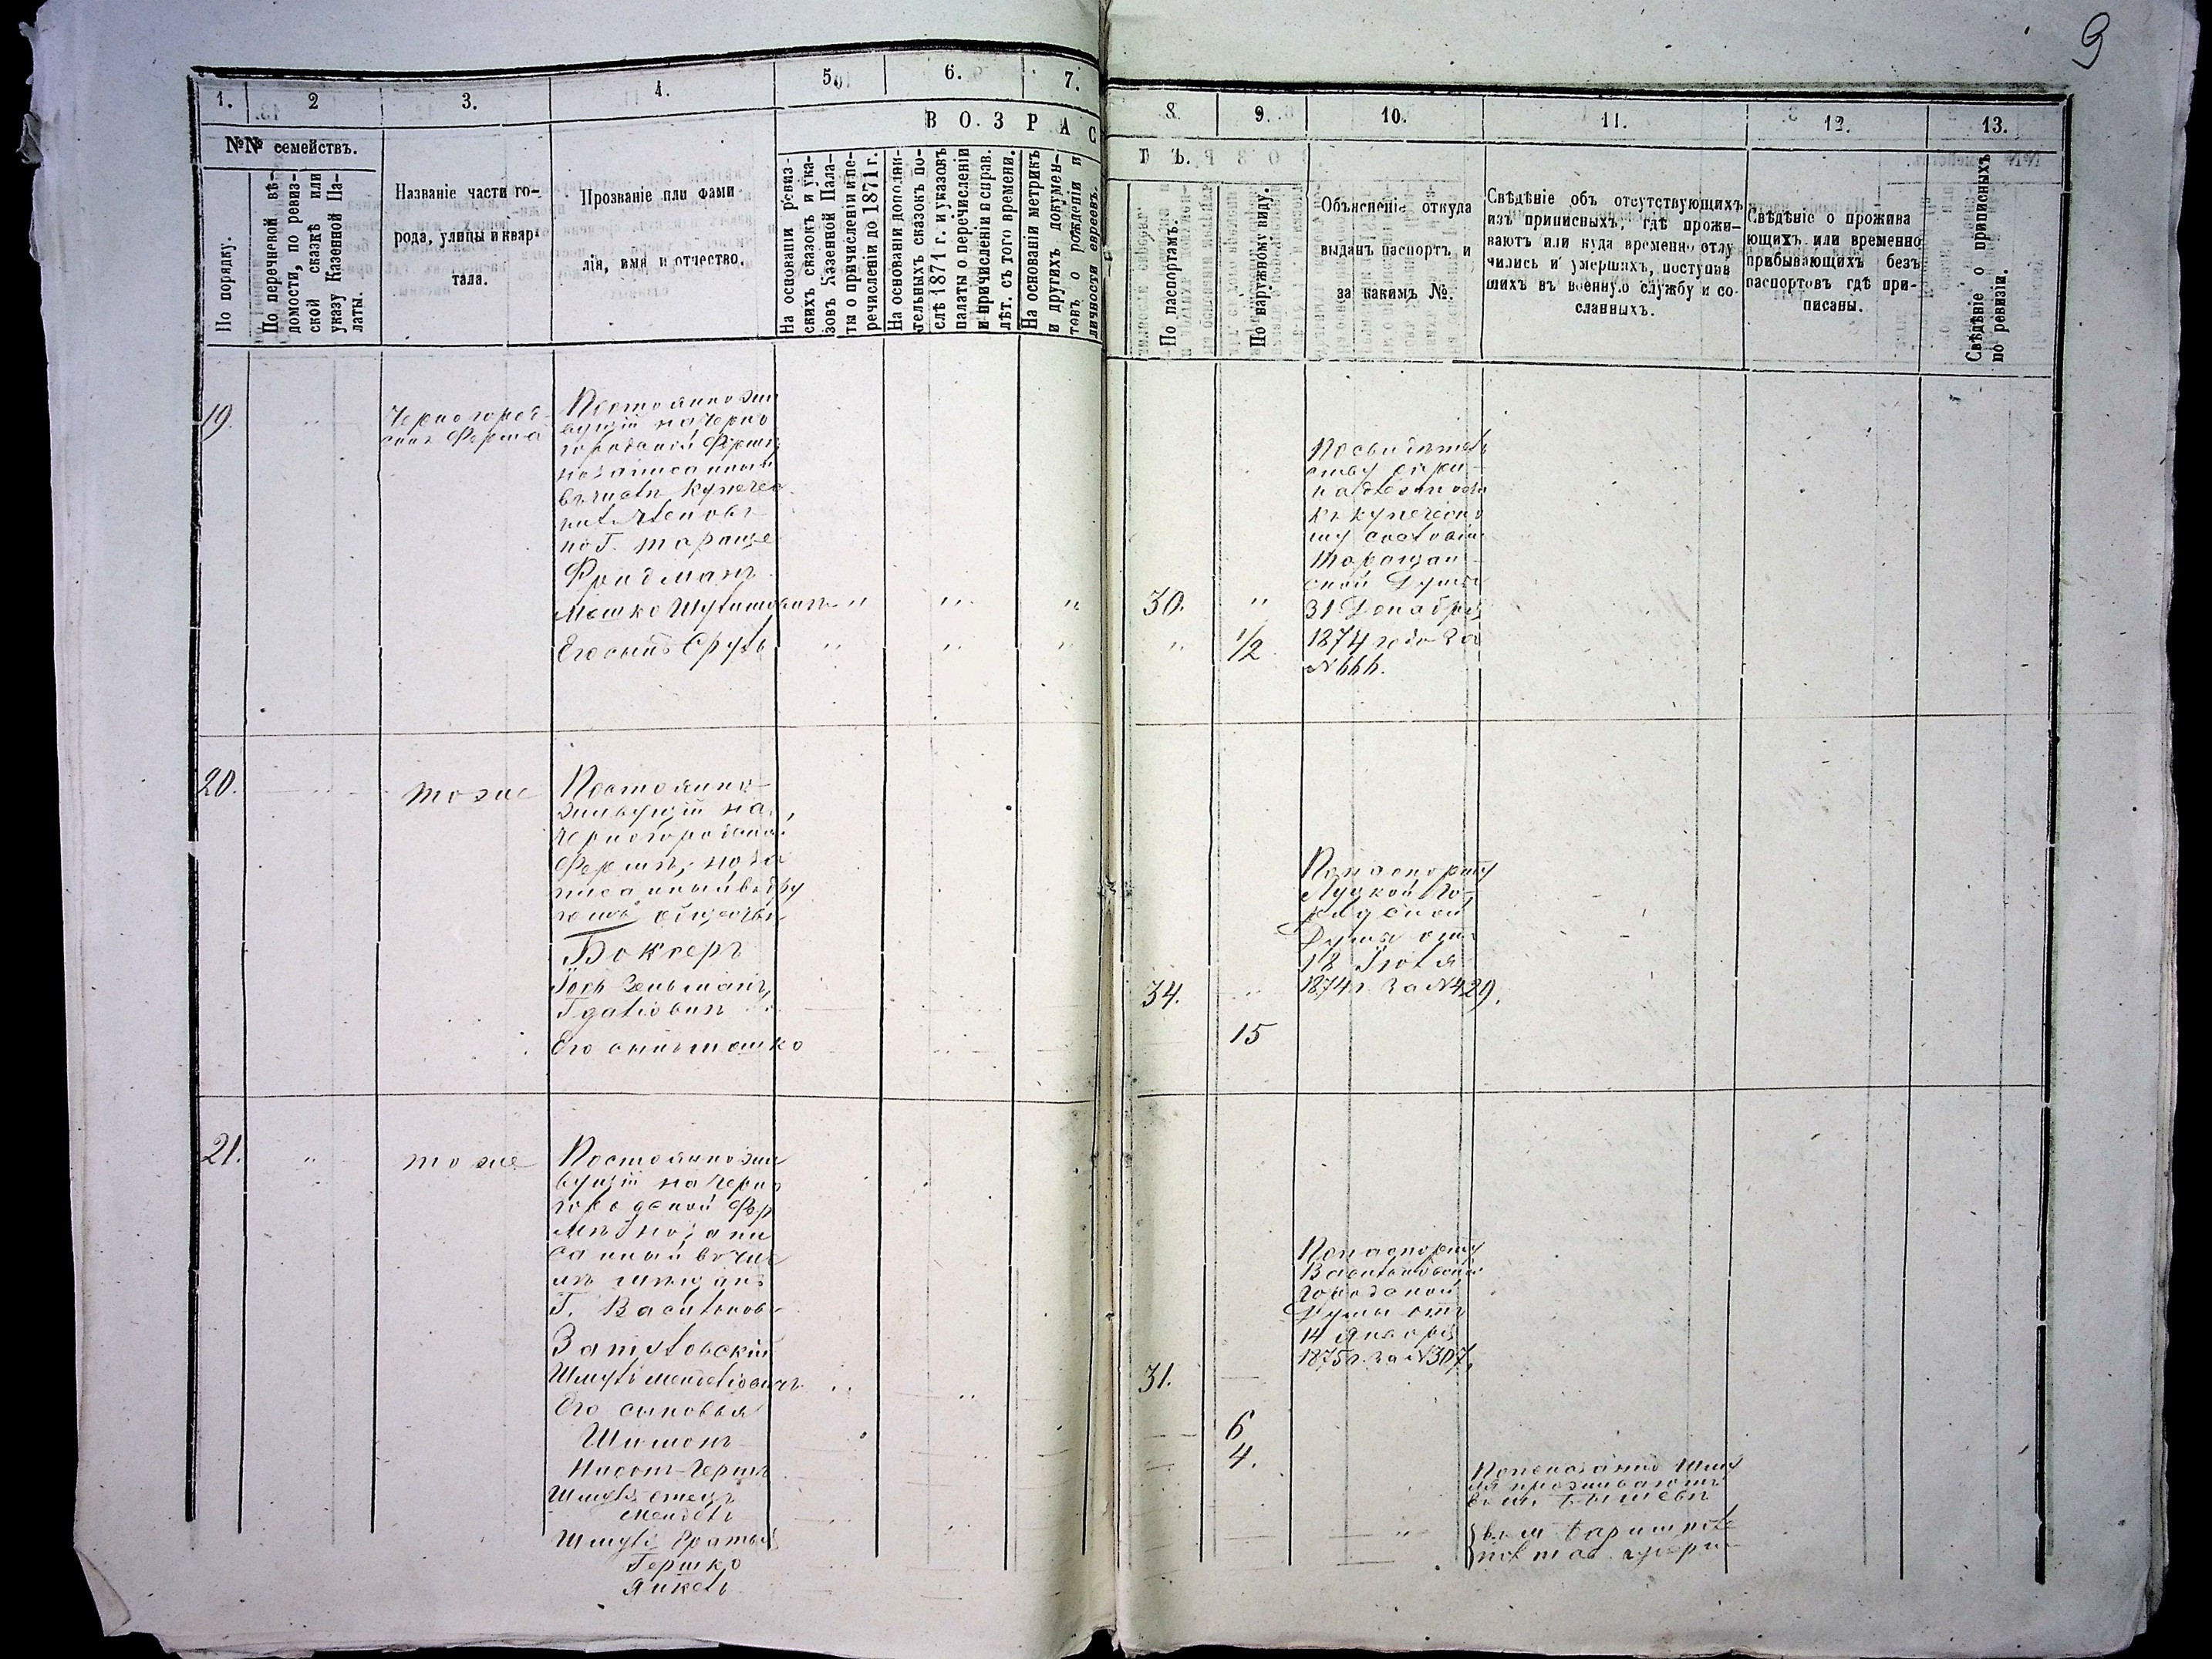 9
1. 2 3. 4. 5. 6. 7. 8. 9. 10. 11. 12. 13.
№№ семействъ.
В О З Р А С Т Ъ.
По порядку.
По перечневой вѣ-
домости, по ревиз-
ской сказкѣ или
указу Казенной Па-
латы.
Названіе части го-
рода, улицы и квар-
тала.
Прозваніе или фами
лія, имя и отчество.
На основаніи ревиз-
скихъ сказокъ и ука-
зовъ Казенной Пала-
ты о причисленіи и пе-
речисленіи до 1871 г.
На основаніи дополни-
тельныхъ сказокъ по-
слѣ 1871 г. и указовъ
палаты о перечисленіи
и причисленіи в справ.
лѣт. съ того времени.
На основаніи метрикъ
и другихъ докумен-
товъ о рожденіи и
личности евреевъ.
По паспортамъ.
По наружному виду.
Объясненіе откуда
выданъ паспортъ и
за какимъ №.
Свѣдѣніе объ отсутствующихъ
изъ приписныхъ, гдѣ прожи-
ваютъ или куда временно отлу
чились и умершихъ, поступив
шихъ въ военную службу и со-
сланныхъ.
Свѣдѣніе о прожива
ющихъ или временно
прибывающихъ безъ
паспортовъ гдѣ при-
писаны.
Свѣдѣніе о приписныхъ
по ревизіи.
19.
Черногород-
ская Ферма
Постоянножи
вущій на Черно
городской Фермѣ
но записанный
въ числѣ купечес
по Г. Тараще
Фридманъ
Мошко Шулимовичъ " " " 30. "
Его сынъ Сруль " " " " 1/2
По свидѣтель
ству о при
надлежности
къ купеческо
му сословію
Таращан-
ской Думы
31 Декабря
1874 года за
№ 666.
20.
тоже
Постоянно-
живущій на
Черногородской
Фермѣ, но за
писанный въ дру
гомъ обществѣ
Боксеръ
Іось Зельманъ
34.
Его сынъ Мошко
15
По паспорту
Луцкой Го-
родской
Думы отъ
18 Іюля
1874 г. за № 429.
21.
тоже
Постоянно жи
вущій на Черно
городской Фер
мѣ, но запи
санный въ чис
лѣ мѣщанъ
Г. Василькова
Запутовскій
Шмуль Менделіовичъ
31.
Его сыновья
Шимонъ
6
Нисонъ-Гершъ
4.
Шмуля отецъ
Мендель
Шмуля братья
Гершко
Янкель
По паспорту
Васильковской
Городской
Думы отъ
14 Января
1875 г. за № 307.
По показанію Шму
ля проживаютъ